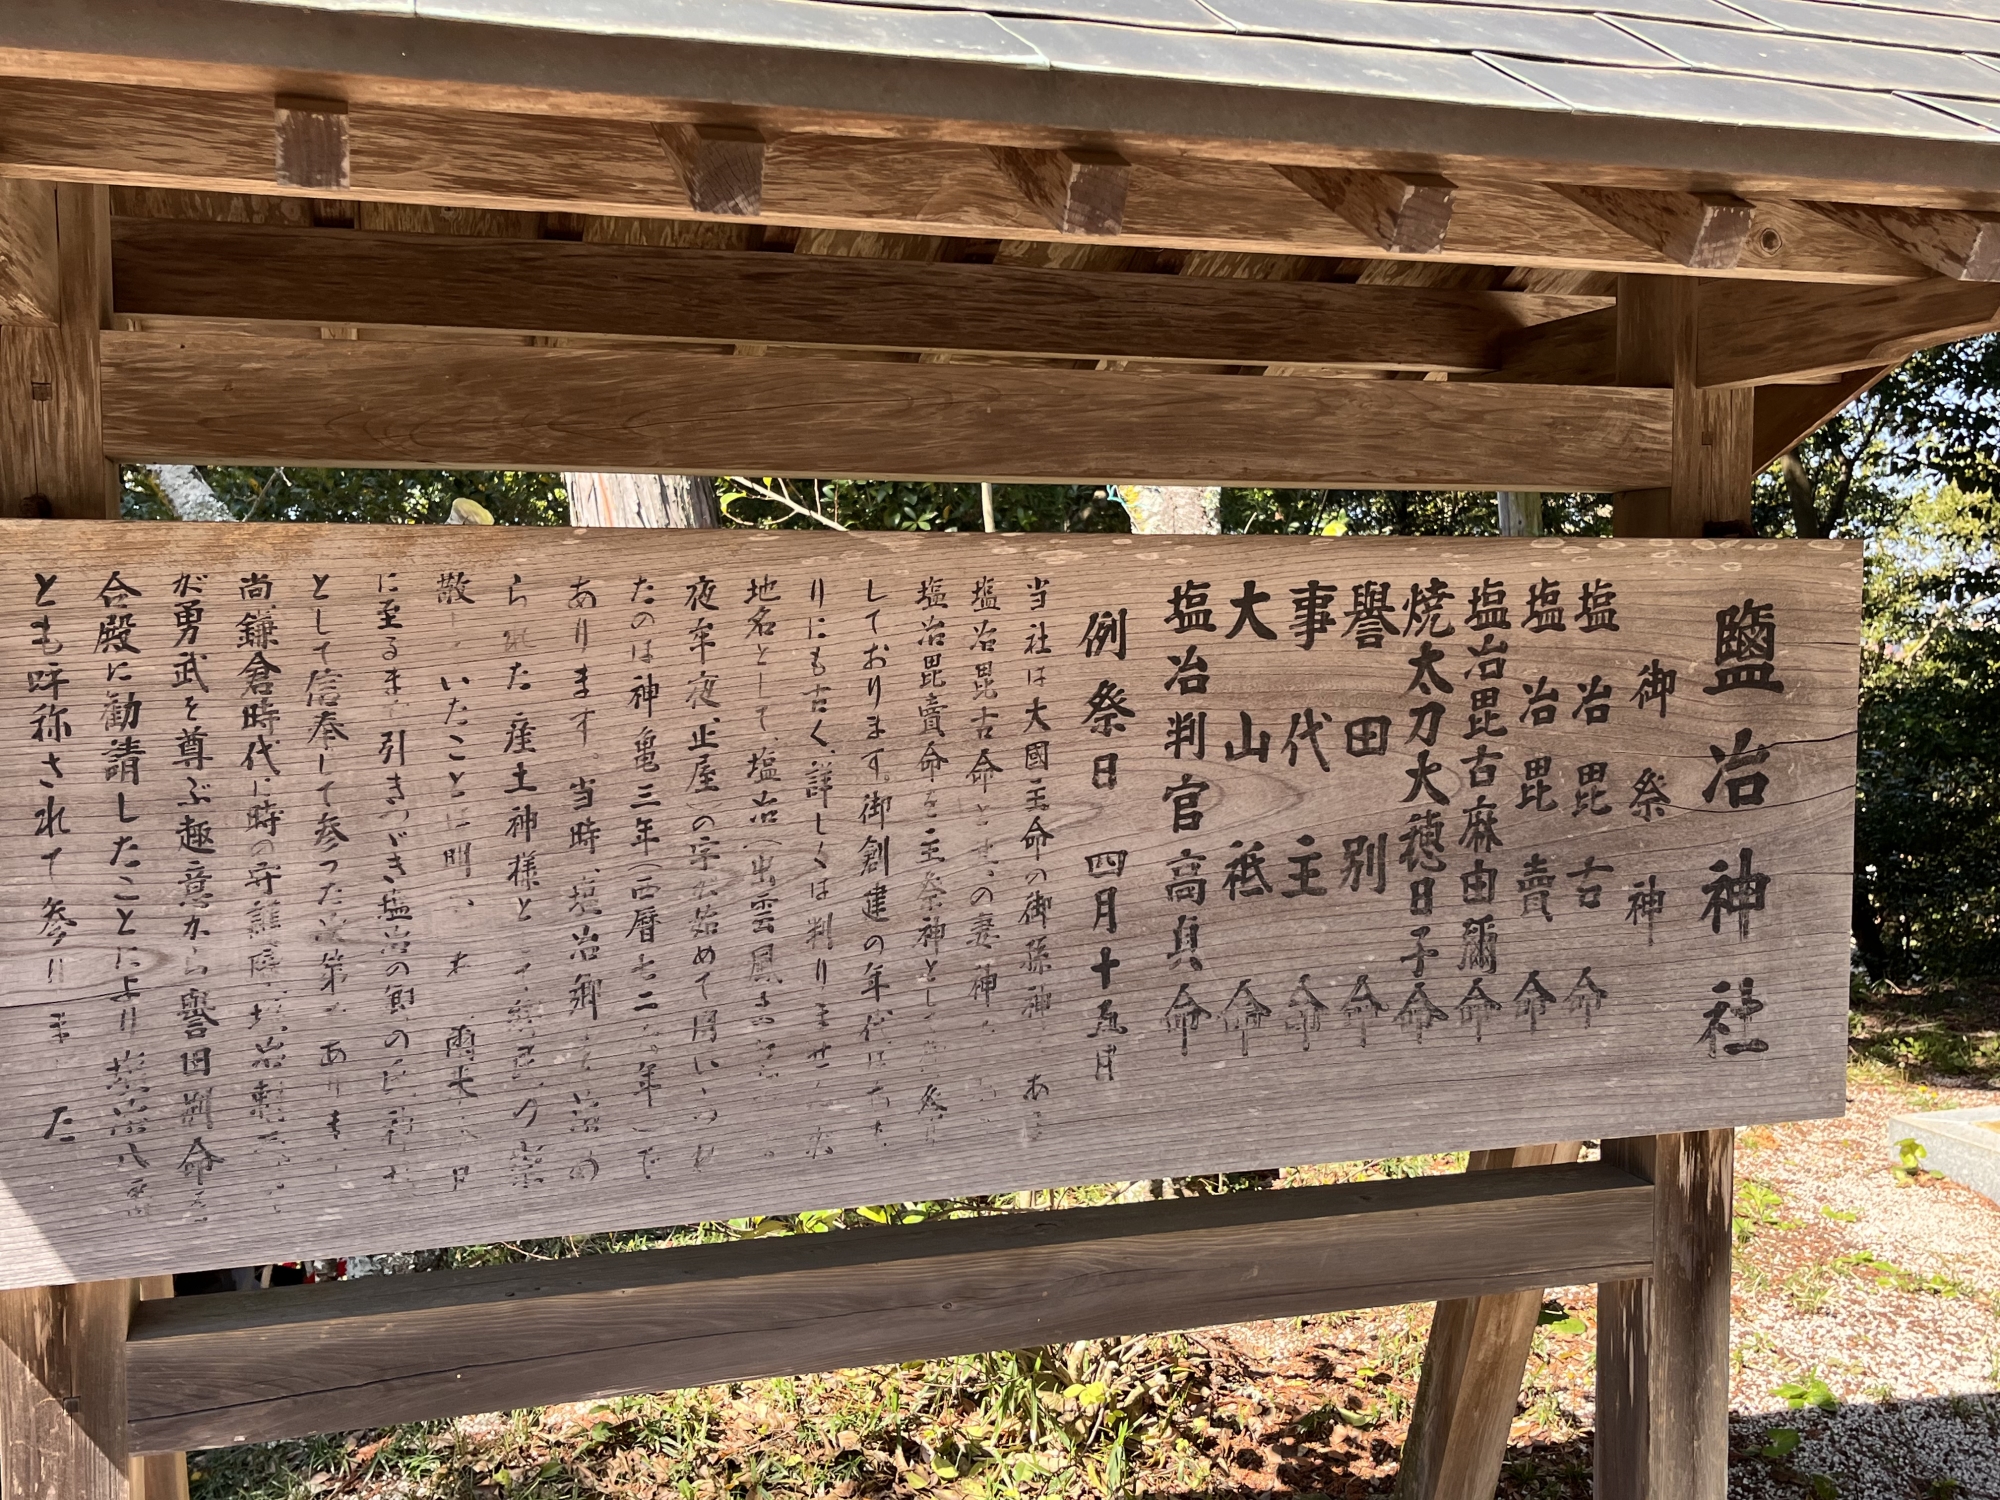 鹽冶神社
御祭神
塩冶毘古命
塩冶毘賣命
塩冶毘古麻由彌命
焼太刀大穂日子命
譽田別命
事代主命
大山祗命
塩冶判官高貞命
例祭日 四月十五日
当社は大國主命の御孫神 ある
塩冶毘古命とその妻神
塩冶毘賣命を主祭神とし
しております。御創建の年代はあた
りにも古く、詳しくは判りませんが
地名として、塩冶(出雲風土記
夜牟夜(止屋)の字が始めて用いられ
たのは神亀三年(西暦七二六年)で
あります。当時、塩冶郷を治め
られた産土神様として郷民の崇
敬 いたことは明 雨
に至るまで引きつづき塩冶の郷の氏神
として信奉して参った次第であります
尚鎌倉時代に時の守護職塩冶
が勇武を尊ぶ趣意から譽田別命を
合殿に勧請したことにより塩冶八幡
とも呼称されて参りました